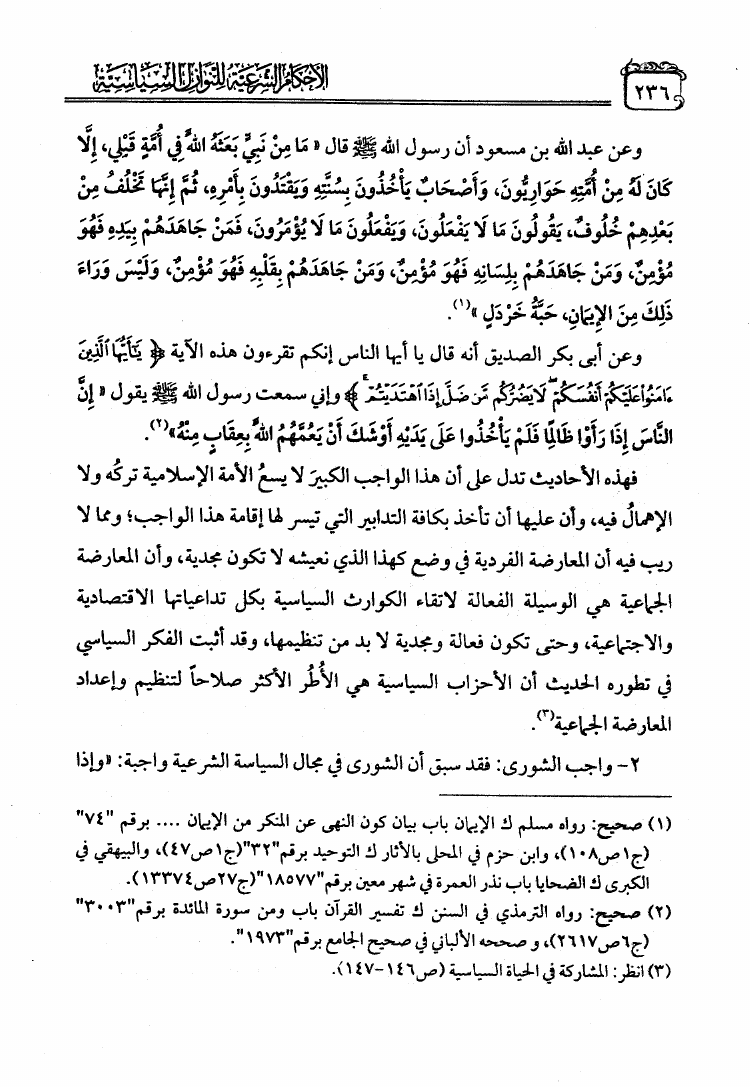 ٢٣٦
الأحكام الشرعية للنوازل السياسية
وعن عبد الله بن مسعود أن رسول الله ﷺ قال « مَا مِنْ نَبِيٍّ بَعَثَهُ اللهُ فِي أُمَّةٍ قَبْلِي، إِلَّا
كَانَ لَهُ مِنْ أُمَّتِهِ حَوَارِيُّونَ، وَأَصْحَابٌ يَأْخُذُونَ بِسُنَّتِهِ وَيَقْتَدُونَ بِأَمْرِهِ، ثُمَّ إِنَّهَا تَخْلُفُ مِنْ
بَعْدِهِمْ خُلُوفٌ، يَقُولُونَ مَا لَا يَفْعَلُونَ، وَيَفْعَلُونَ مَا لَا يُؤْمَرُونَ، فَمَنْ جَاهَدَهُمْ بِيَدِهِ فَهُوَ
مُؤْمِنٌ، وَمَنْ جَاهَدَهُمْ بِلِسَانِهِ فَهُوَ مُؤْمِنٌ، وَمَنْ جَاهَدَهُمْ بِقَلْبِهِ فَهُوَ مُؤْمِنٌ، وَلَيْسَ وَرَاءَ
ذَلِكَ مِنَ الإِيمَانِ، حَبَّةُ خَرْدَلٍ »(١).
وعن أبى بكر الصديق أنه قال يا أيها الناس إنكم تقرءون هذه الآية ﴿ يَٰٓأَيُّهَا ٱلَّذِينَ
ءَامَنُوا۟ عَلَيْكُمْ أَنفُسَكُمْ ۖ لَا يَضُرُّكُم مَّن ضَلَّ إِذَا ٱهْتَدَيْتُمْ ۚ ﴾ وإني سمعت رسول الله ﷺ يقول « إِنَّ
النَّاسَ إِذَا رَأَوْا ظَالِمًا فَلَمْ يَأْخُذُوا عَلَى يَدَيْهِ أَوْشَكَ أَنْ يَعُمَّهُمُ اللهُ بِعِقَابٍ مِنْهُ»(٢).
فهذه الأحاديث تدل على أن هذا الواجب الكبيرَ لا يسعُ الأمة الإسلامية تركُه ولا
الإهمالُ فيه، وأن عليها أن تأخذ بكافة التدابير التي تيسر لها إقامة هذا الواجب؛ ومما لا
ريب فيه أن المعارضة الفردية في وضع كهذا الذي نعيشه لا تكون مجدية، وأن المعارضة
الجماعية هي الوسيلة الفعالة لاتقاء الكوارث السياسية بكل تداعياتها الاقتصادية
والاجتماعية، وحتى تكون فعالة ومجدية لا بد من تنظيمها، وقد أثبت الفكر السياسي
في تطوره الحديث أن الأحزاب السياسية هي الأُطُر الأكثر صلاحاً لتنظيم وإعداد
المعارضة الجماعية(٣).
٢- واجب الشورى: فقد سبق أن الشورى في مجال السياسة الشرعية واجبة: «وإذا
(١) صحيح: رواه مسلم ك الإيمان باب بيان كون النهى عن المنكر من الإيمان .... برقم "٧٤"
(ج١ص١٠٨)، وابن حزم في المحلى بالأثار ك التوحيد برقم"٣٢"(ج١ص٤٧)، والبيهقي في
الكبرى ك الضحايا باب نذر العمرة في شهر معين برقم"١٨٥٧٧"(ج٢٧ص١٣٣٧٤).
(٢) صحيح: رواه الترمذي في السنن ك تفسير القرآن باب ومن سورة المائدة برقم"٣٠٠٣"
(ج٦ص٢٦١٧)، و صححه الألباني في صحيح الجامع برقم"١٩٧٣".
(٣) انظر: المشاركة في الحياة السياسية (ص١٤٦-١٤٧).